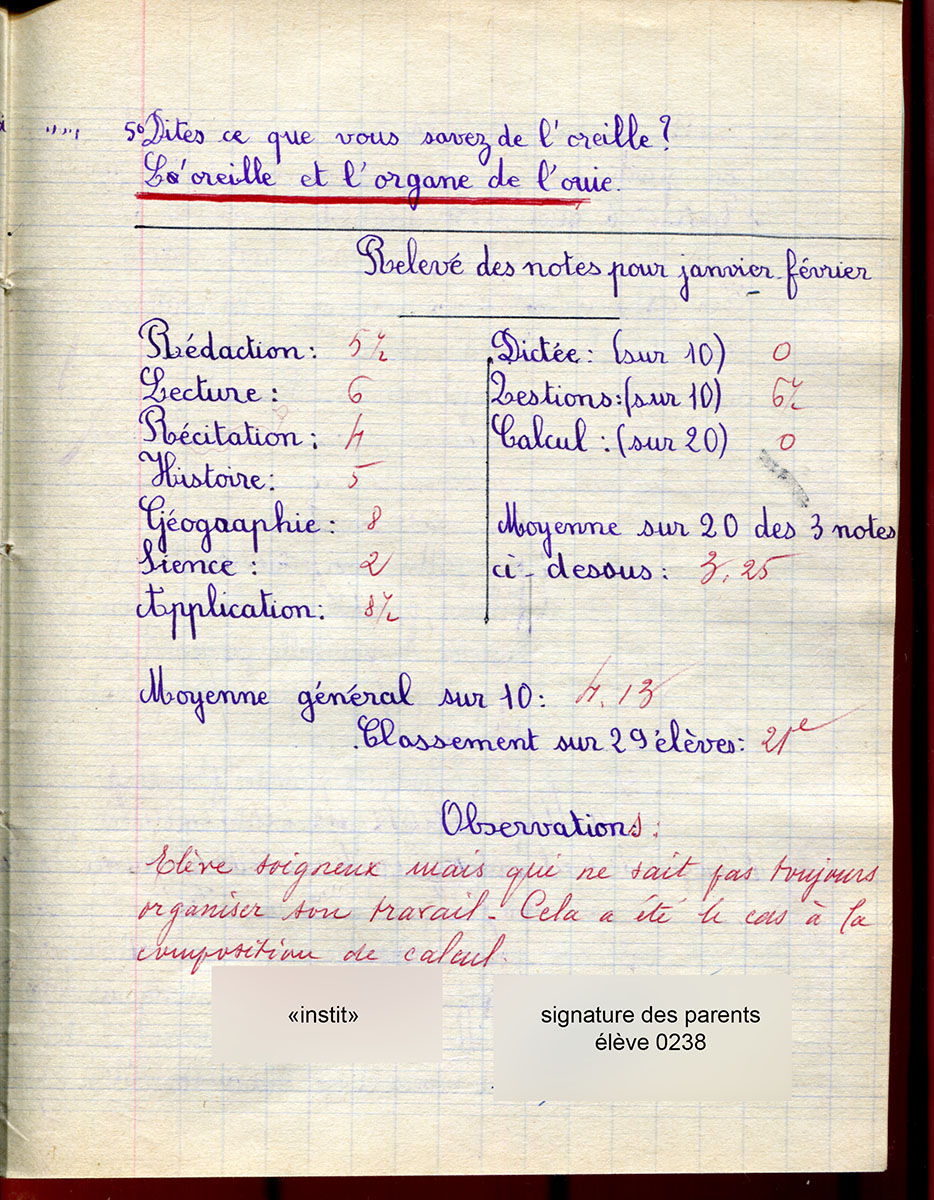 5° Dites ce que vous savez de l'oreille?
L'oreille et l'organe de l'ouie.
Relevé des notes pour janvier-février
Rédaction: 5½
Lecture: 6
Récitation: 4
Histoire: 5
Géographie: 8
Sience: 2
Application: 8½
Dictée: (sur 10) 0
Qestions: (sur 10) 6½
Calcul: (sur 20) 0
Moyenne sur 20 des 3 notes
ci-desous: 3,25
Moyenne général sur 10: 4,13
Classement sur 29 élèves: 21e
Observations:
Elève soigneux mais qui ne sait pas toujours
organiser son travail - Cela a été le cas à la
composition de calcul.
«instit»
signature des parents
élève 0238